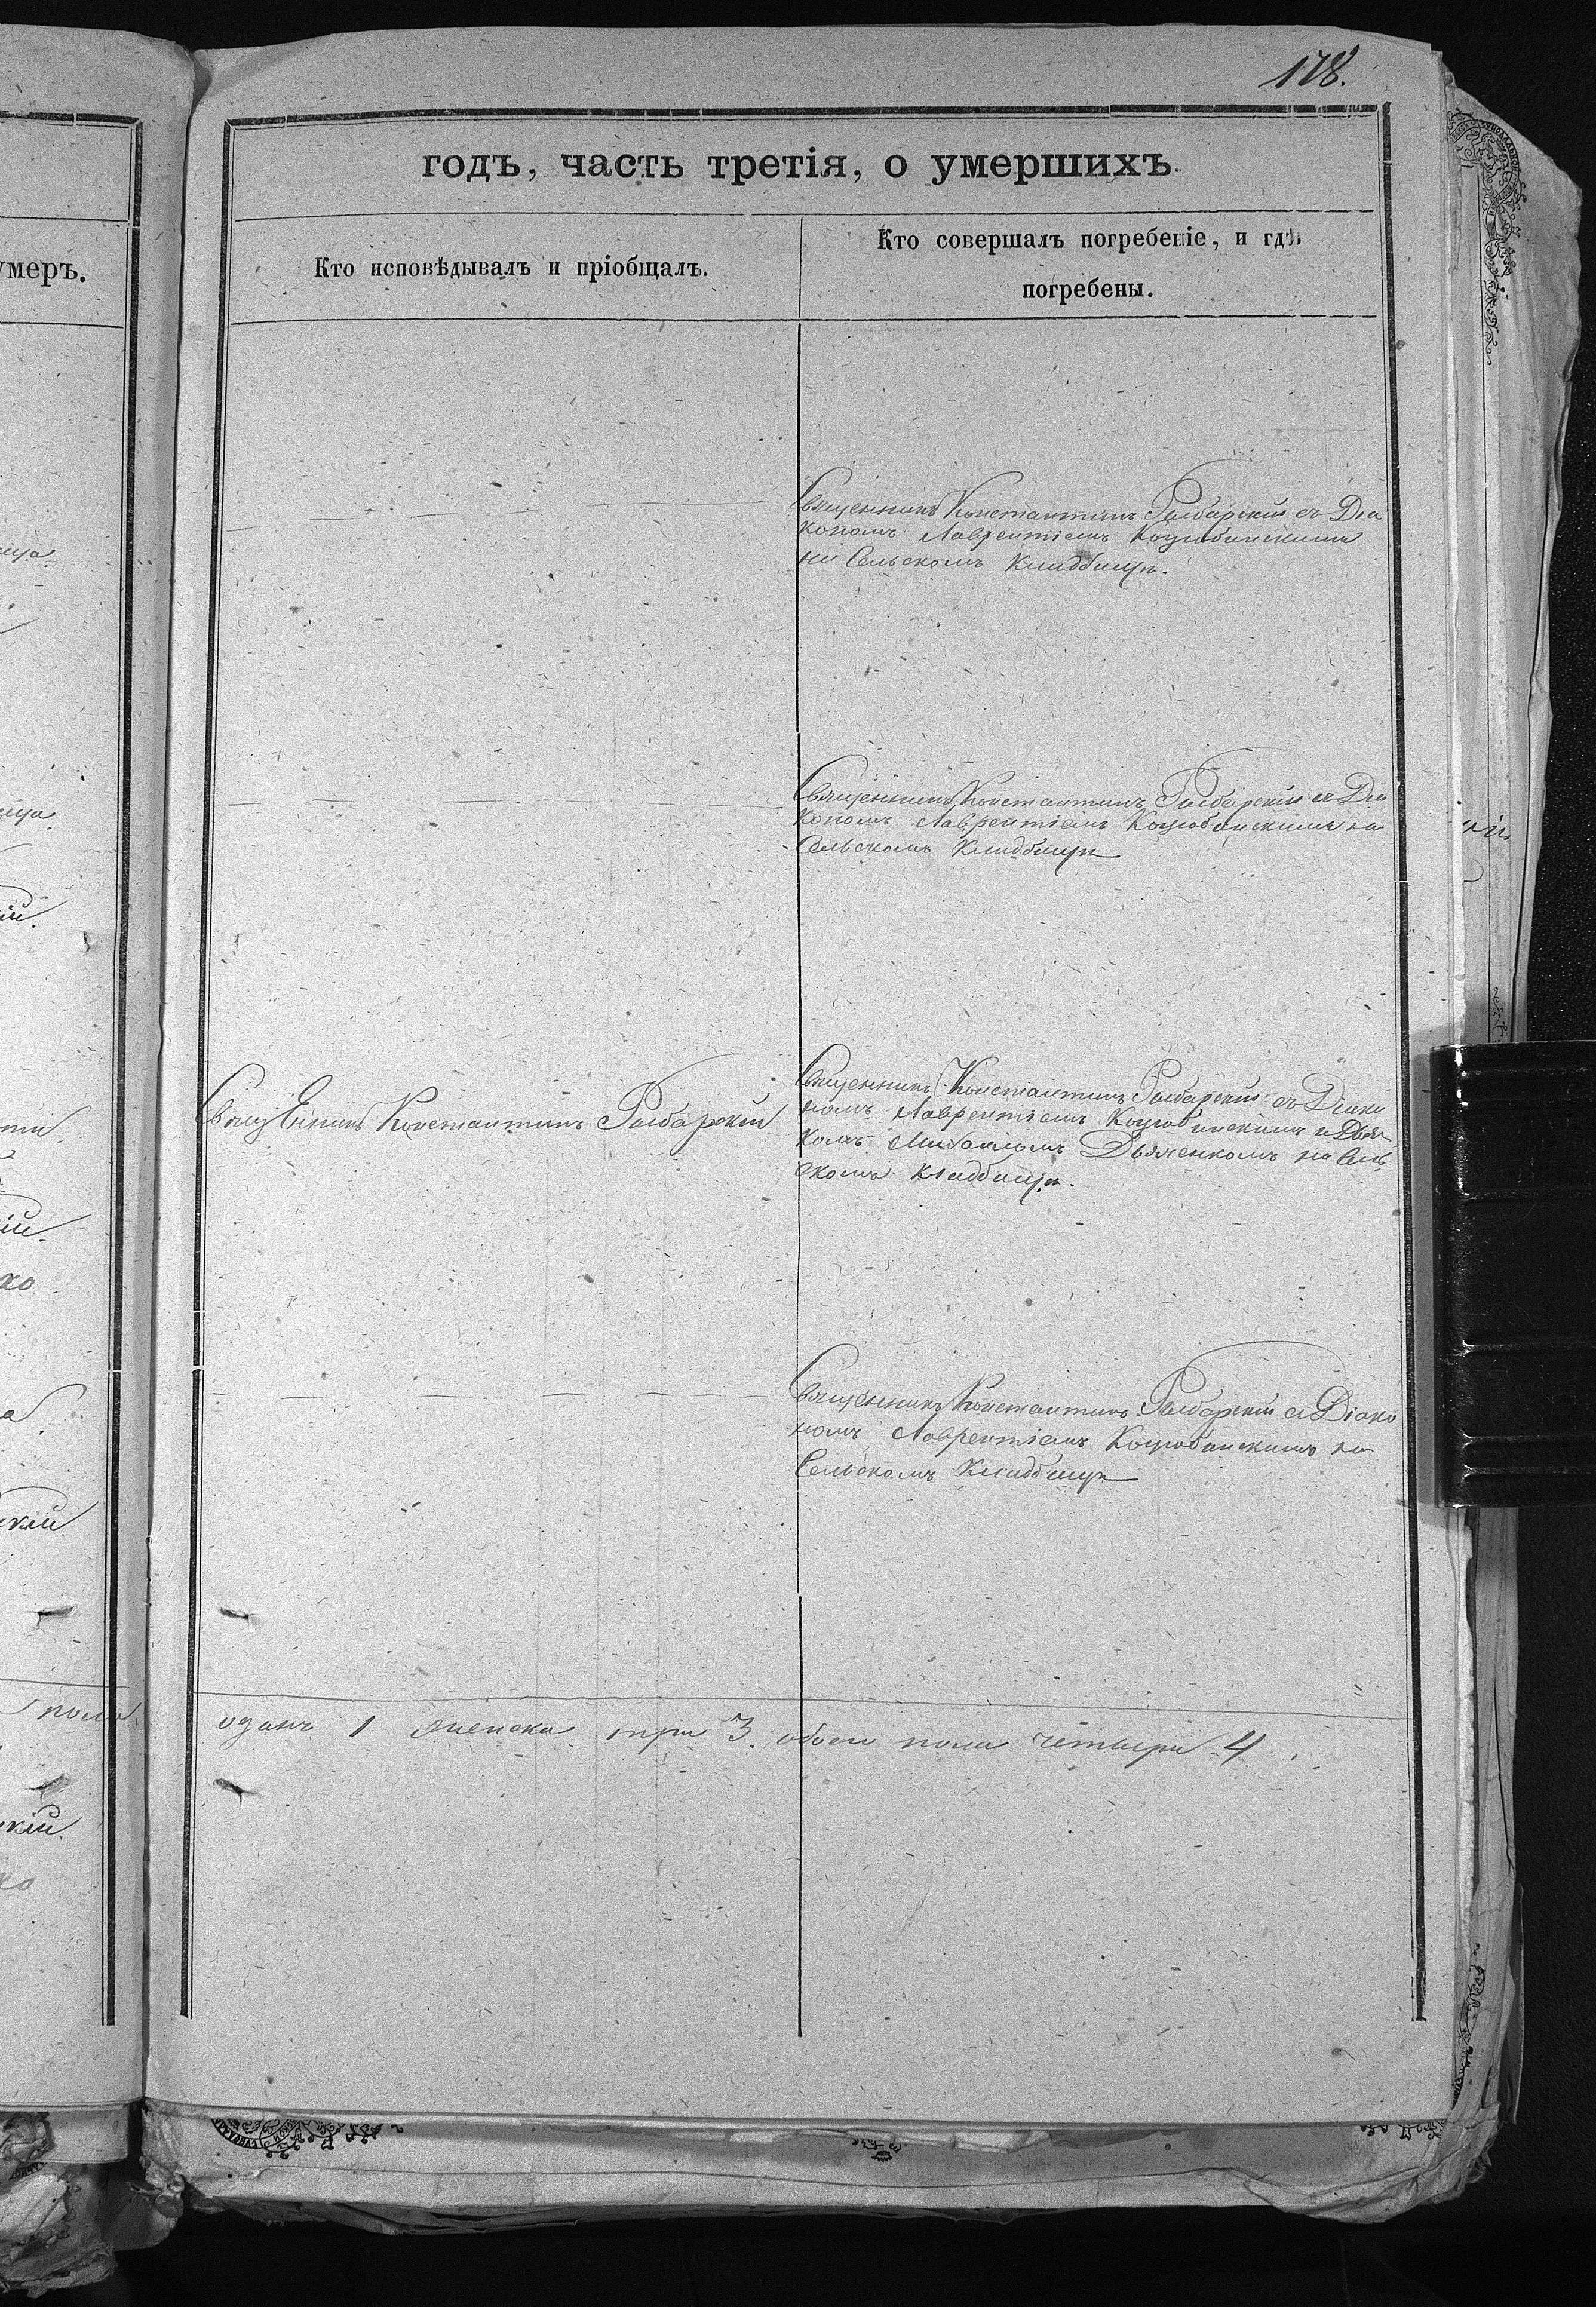 178.
годъ, часть третія, о умершихъ.
умеръ.
Кто исповѣдывалъ и пріобщалъ.
Кто совершалъ погребеніе, и гдѣ
погребены.
Священникъ Константинъ съ Діа
кономъ Лаврентіемъ Коцюбинскимъ
на Сельскомъ Кладбищѣ.
Священникъ Константинъ съ Діа
кономъ Лаврентіемъ Коцюбинскимъ на
Сельскомъ Кладбищѣ
Священникъ Константинъ
Священникъ Константинъ съ Діако
номъ Лаврентіемъ Коцюбинскимъ и Дья
комъ Михаиломъ Дьяченкомъ на Сель
скомъ кладбищѣ.
Священникъ Константинъ съ Діако
номъ Лаврентіемъ Коцюбинскимъ на
Сельскомъ Кладбищѣ
пола
одинъ 1 женска три 3. обоего пола четыри 4.